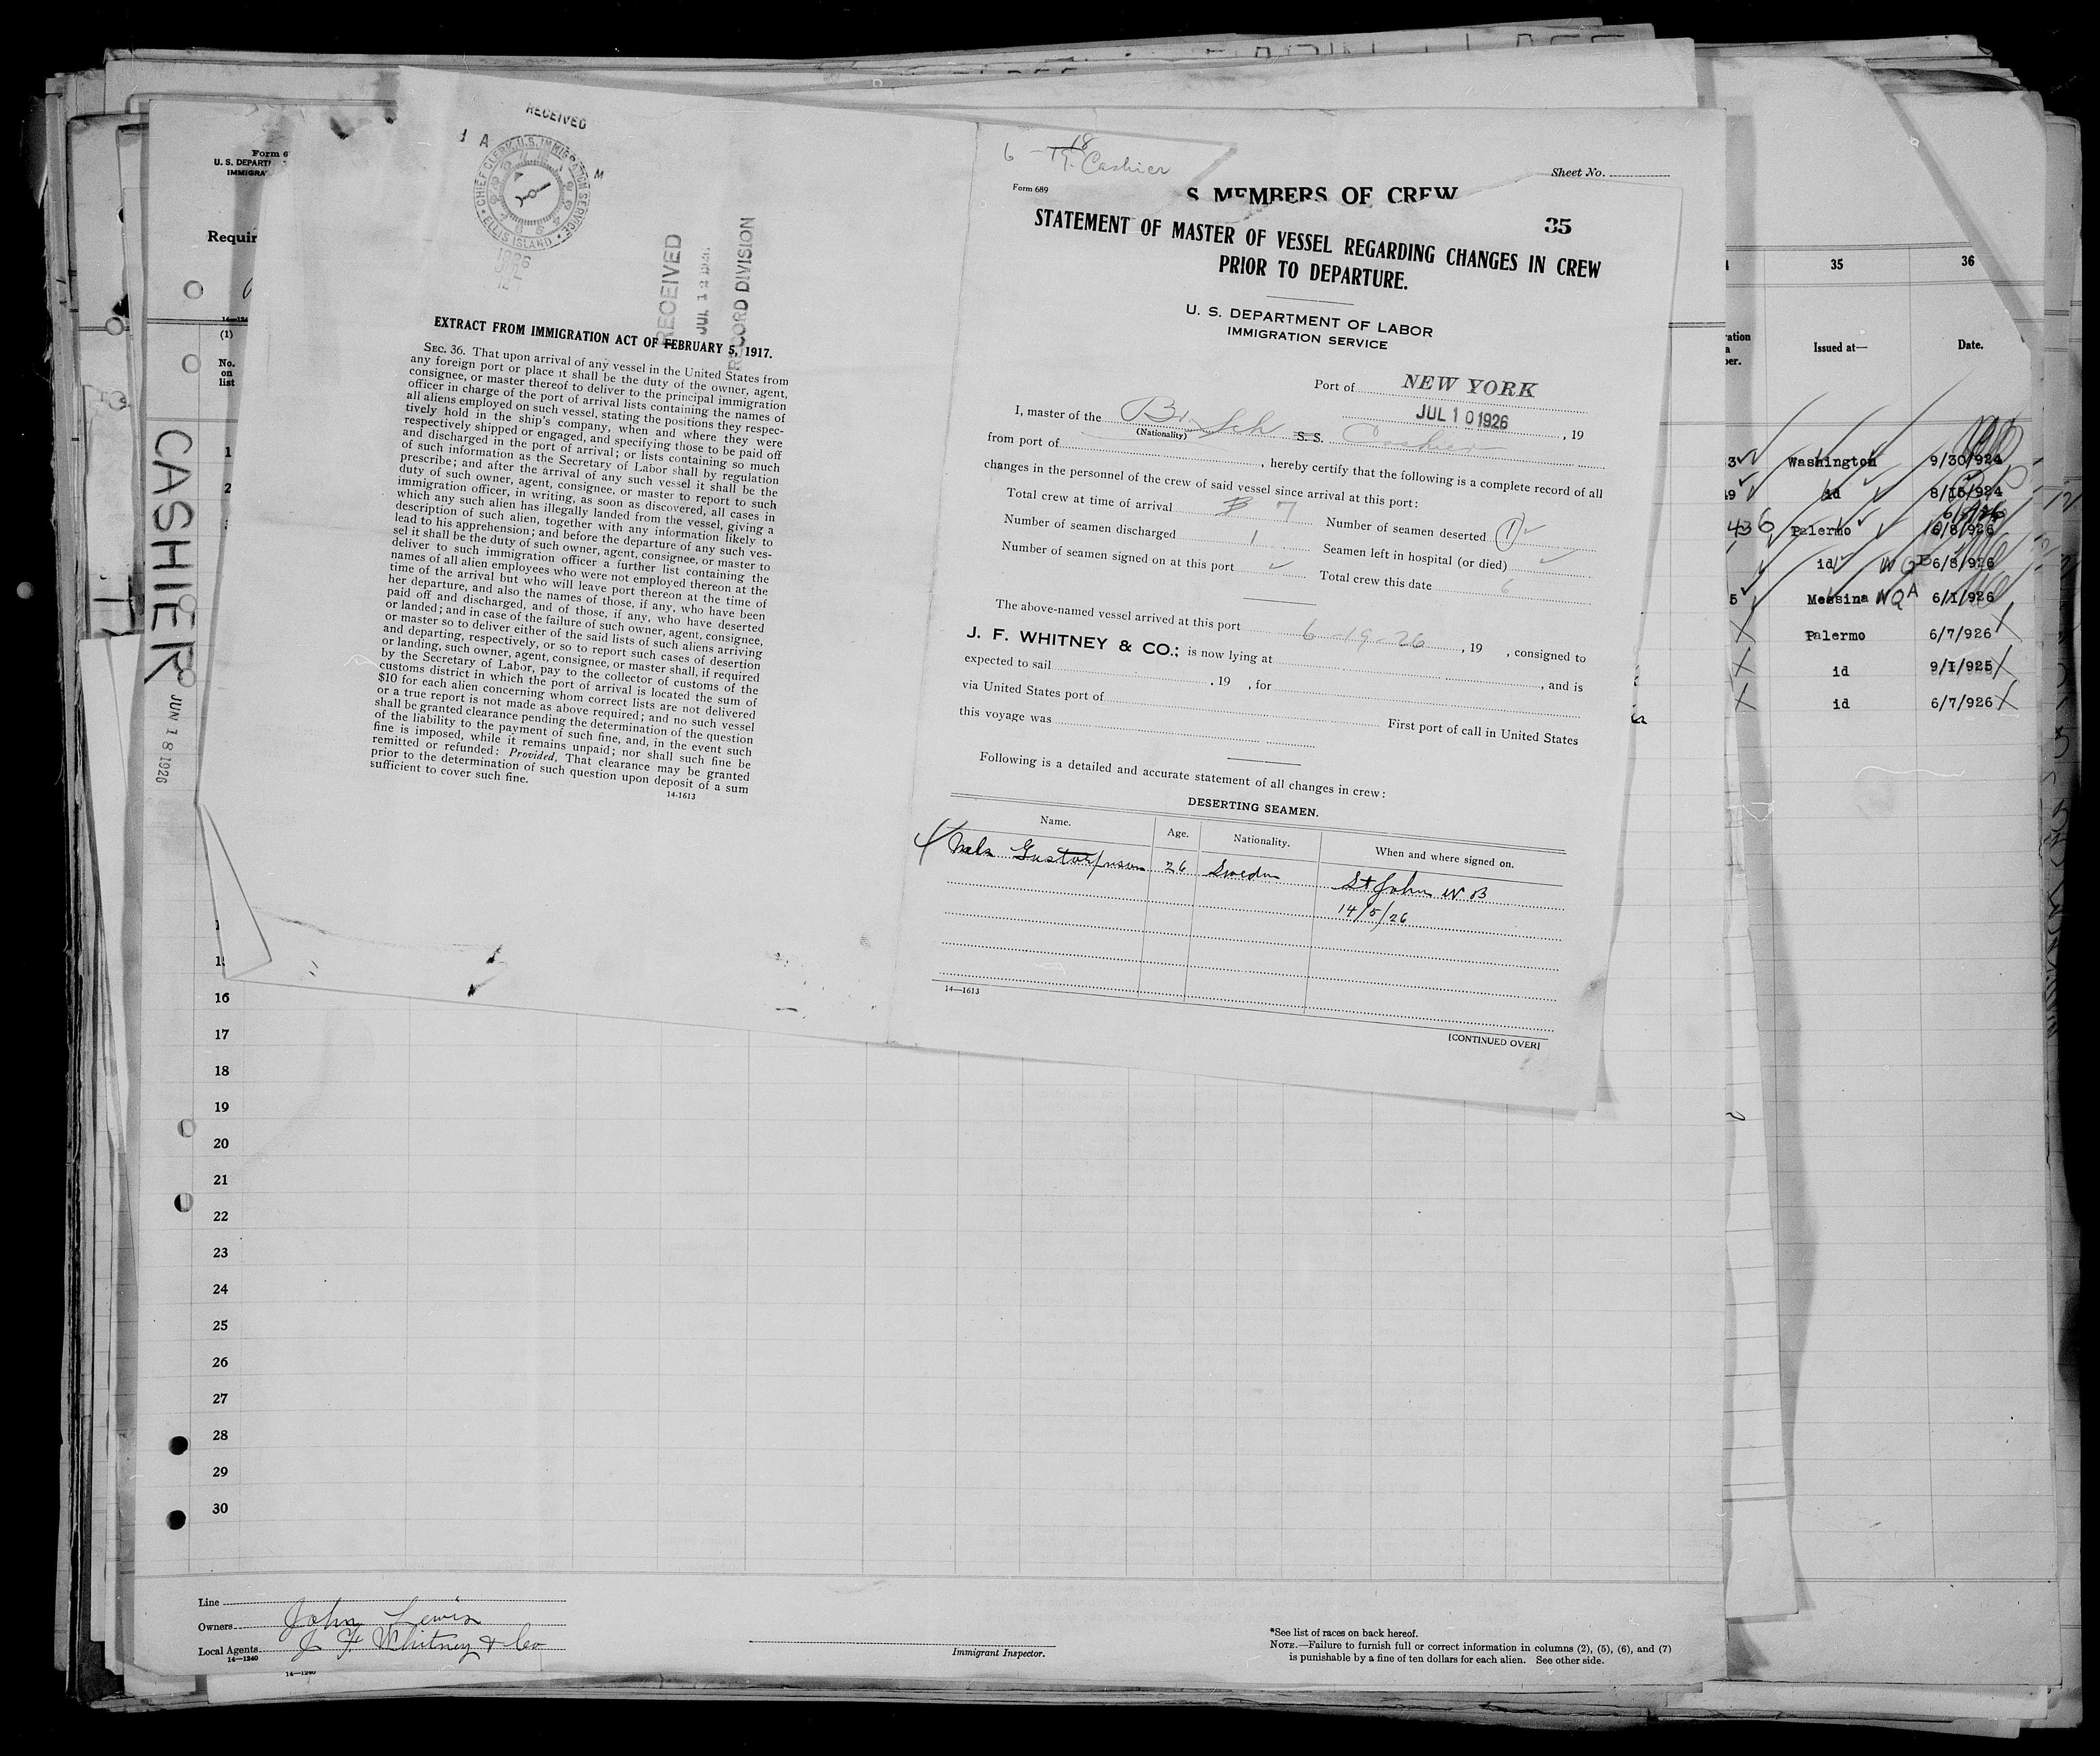 RECEIVED
CHIEF CLERK, U.S. IMMIGRATION SERVICE
ELLIS ISLAND
RECEIVED
JUL 12
RECORD DIVISION
EXTRACT FROM IMMIGRATION ACT OF FEBRUARY 5, 1917.
SEC. 36. That upon arrival of any vessel in the United States from
any foreign port or place it shall be the duty of the owner, agent,
consignee, or master thereof to deliver to the principal immigration
officer in charge of the port of arrival lists containing the names of
all aliens employed on such vessel, stating the positions they respec-
tively hold in the ship's company, when and where they were
respectively shipped or engaged, and specifying those to be paid off
and discharged in the port of arrival; or lists containing so much
of such information as the Secretary of Labor shall by regulation
prescribe; and after the arrival of any such vessel it shall be the
duty of such owner, agent, consignee, or master to report to such
immigration officer, in writing, as soon as discovered, all cases in
which any such alien has illegally landed from the vessel, giving a
description of such alien, together with any information likely to
lead to his apprehension; and before the departure of any such ves-
sel it shall be the duty of such owner, agent, consignee, or master to
deliver to such immigration officer a further list containing the
names of all alien employees who were not employed thereon at the
time of the arrival but who will leave port thereon at the time of
her departure, and also the names of those, if any, who have been
paid off and discharged, and of those, if any, who have deserted
or landed; and in case of the failure of such owner, agent, consignee,
or master so to deliver either of the said lists of such aliens arriving
and departing, respectively, or so to report such cases of desertion
or landing, such owner, agent, consignee, or master shall, if required
by the Secretary of Labor, pay to the collector of customs of the
customs district in which the port of arrival is located the sum of
$10 for each alien concerning whom correct lists are not delivered
or a true report is not made as above required; and no such vessel
shall be granted clearance pending the determination of the question
of the liability to the payment of such fine, and, in the event such
fine is imposed, while it remains unpaid; nor shall such fine be
remitted or refunded: Provided, That clearance may be granted
prior to the determination of such question upon deposit of a sum
sufficient to cover such fine.
14-1613
6 - 18
19. Cashier
Form 689
S MEMBERS OF CREW
Sheet No.
35
STATEMENT OF MASTER OF VESSEL REGARDING CHANGES IN CREW
PRIOR TO DEPARTURE.
U. S. DEPARTMENT OF LABOR
IMMIGRATION SERVICE
Port of NEW YORK
JUL 10 1926, 19
I, master of the Br. Sch S. S. Cashier
(Nationality)
from port of , hereby certify that the following is a complete record of all
changes in the personnel of the crew of said vessel since arrival at this port:
Total crew at time of arrival 7
Number of seamen deserted 1
Number of seamen discharged 1
Seamen left in hospital (or died)
Number of seamen signed on at this port
Total crew this date 6
The above-named vessel arrived at this port 6-19-26, 19 , consigned to
J. F. WHITNEY & CO.; is now lying at , and is
expected to sail , 19 , for
via United States port of First port of call in United States
this voyage was
Following is a detailed and accurate statement of all changes in crew:
DESERTING SEAMEN.
Name. Age. Nationality. When and where signed on.
26 Sweden St John N B
14/5/26
14—1613
(CONTINUED OVER)
Form 6
U. S. DEPART
IMMIGRA
Requir
14—124
(1)
No.
on
list
1
2
CASHIER
JUN 18 1926
16
17
18
19
20
21
22
23
24
25
26
27
28
29
30
Line
Owners John Lewis
Local Agents J F Whitney & Co
14—1240
14—1240
Immigrant Inspector.
*See list of races on back hereof.
NOTE.—Failure to furnish full or correct information in columns (2), (5), (6), and (7)
is punishable by a fine of ten dollars for each alien. See other side.
35 36
Issued at— Date.
3 Washington 9/30/924
id 8/15/924
436 Palermo 6/8/926
id 6/8/926
5 Messina 6/1/926
Palermo 6/7/926
id 9/1/925
id 6/7/926